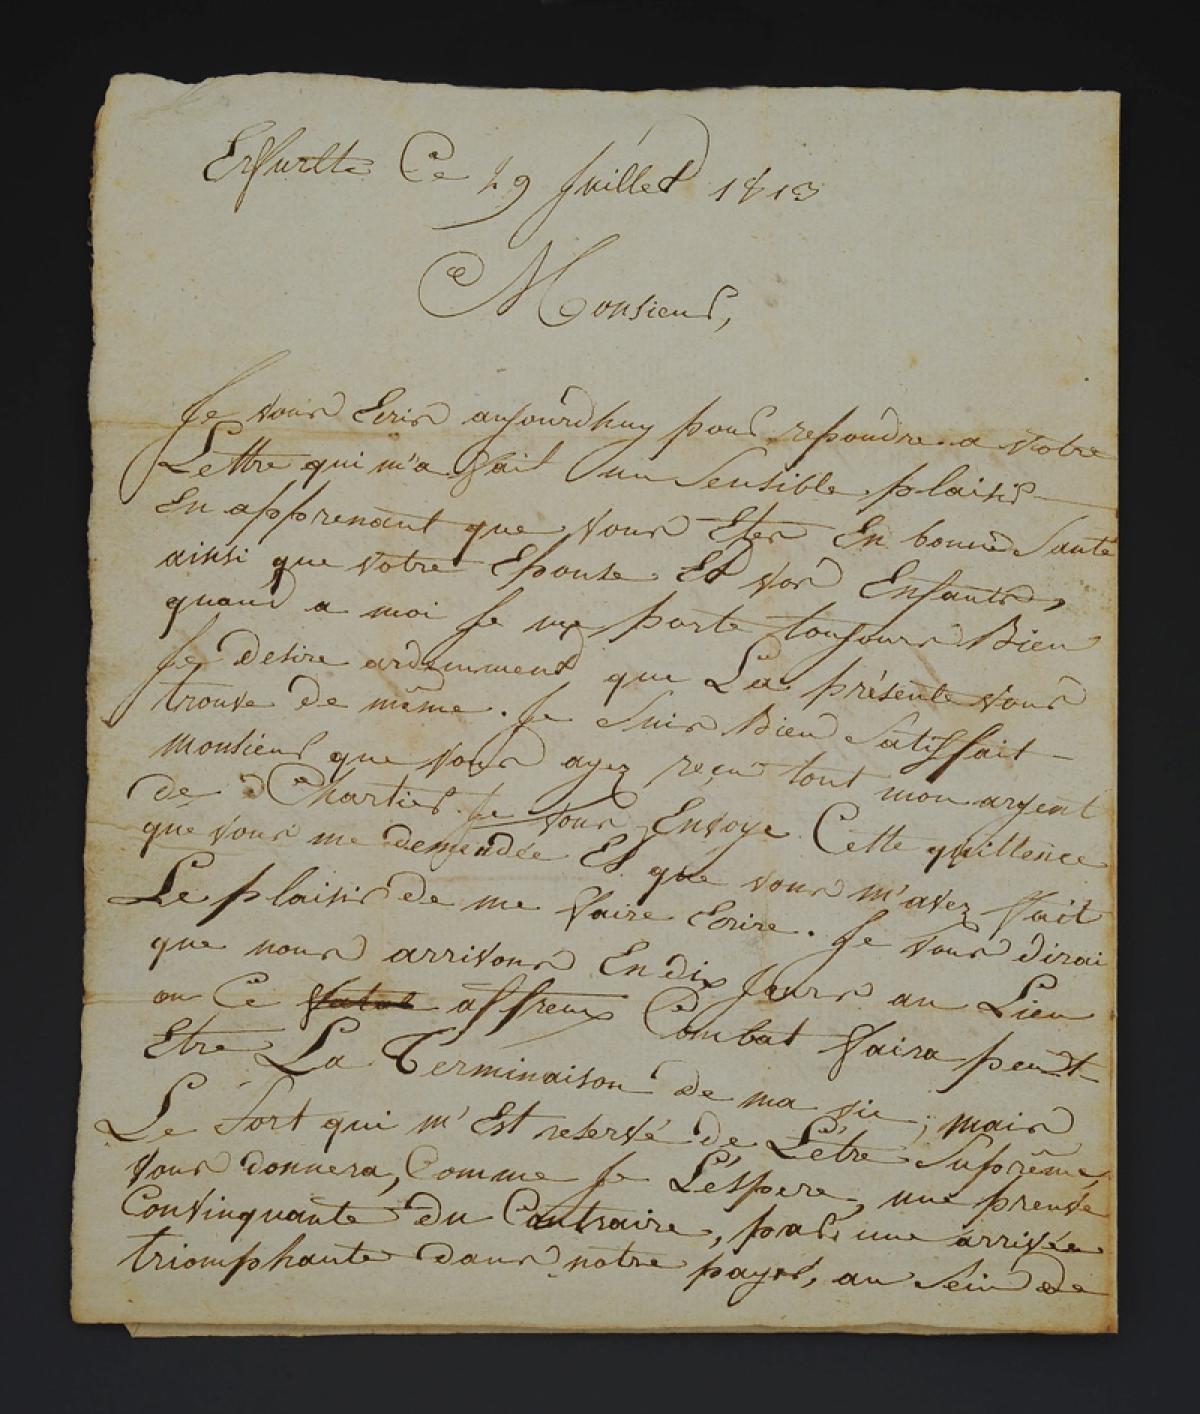 Erfurtte Ce 29 Juillet 1813
Monsieur,
Je vous Ecris aujourdhuy pour repondre a votre
Lettre qui m'a fait un Sensible plaisir
En apprenant que vous Etes En bonne Santé
ainsi que votre Epouse Et vos Enfants,
quand a moi Je me porte toujours Bien
Je desire ardemment que La présente vous
trouve de même. Je Suis Bien Satisfait
monsieur que vous ayez reçu tout mon argent
de Chartier. Je vous Envoye Cette quittence
que vous me demendée Et que vous m'avez fait
Le plaisir de me faire Ecrire. Je vous dirai
que nous arrivons En dix Jours au Lieu
ou Ce fatal affreux Combat faira peut-
Etre La Terminaison de ma vie; mais
Le Sort qui m'Est reservé de L'être Suprême,
vous donnera, Comme Je L'éspere, une preuve
Convinquante du Contraire, par une arrivée
triomphante dans notre pays, au Sein de